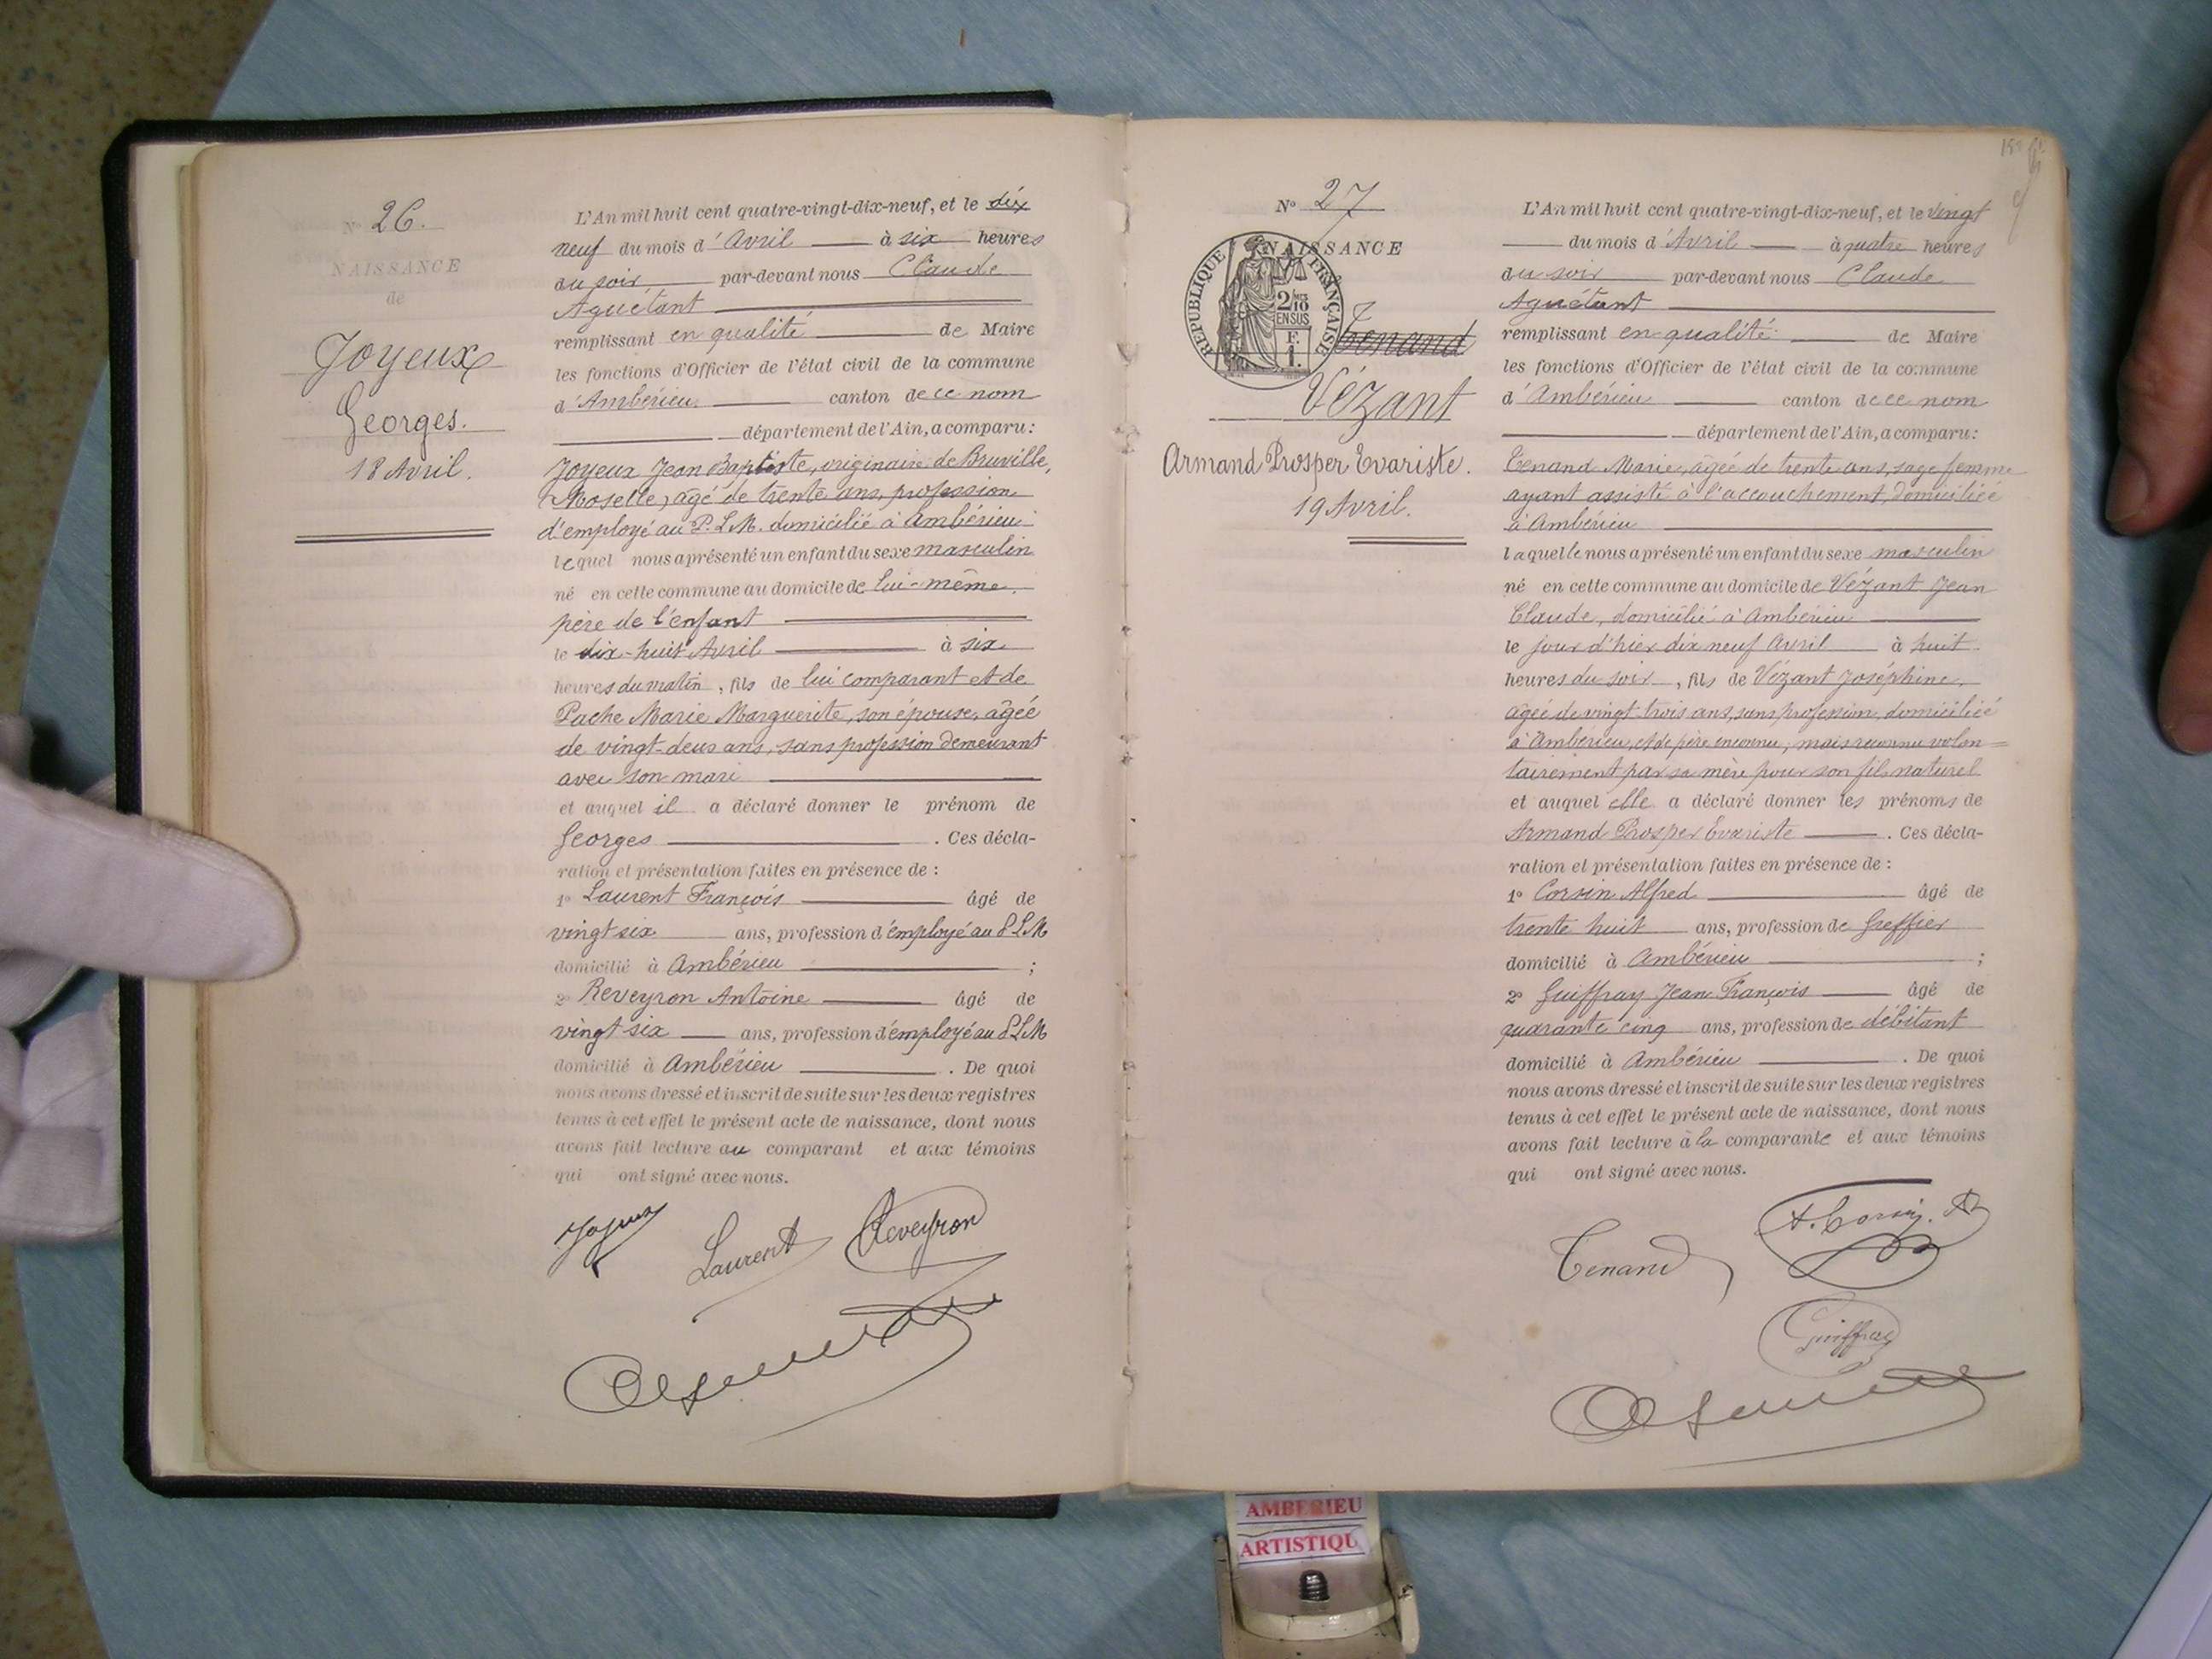 N° 26.
NAISSANCE
de
Joyeux
Georges.
18 Avril.
L'An mil huit cent quatre-vingt-dix-neuf, et le dix
neuf du mois d'Avril à six heures
du soir par-devant nous Claude
Aguétant
remplissant en qualité de Maire
les fonctions d'Officier de l'état civil de la commune
d'Ambérieu canton de ce nom
département de l'Ain, a comparu:
Joyeux Jean Baptiste, originaire de Bruville,
(Moselle) âgé de trente ans, profession
d'employé au P.L.M. domicilié à Ambérieu
lequel nous a présenté un enfant du sexe masculin
né en cette commune au domicile de lui-même,
père de l'enfant
le dix-huit Avril à six
heures du matin, fils de lui comparant et de
Pache Marie Marguerite, son épouse, âgée
de vingt-deux ans, sans profession demeurant
avec son mari
et auquel il a déclaré donner le prénom de
Georges . Ces décla-
ration et présentation faites en présence de :
1° Laurent François âgé de
vingt six ans, profession d'employé au PLM
domicilié à Ambérieu ;
2° Reveyron Antoine âgé de
vingt six ans, profession d'employé au PLM
domicilié à Ambérieu . De quoi
nous avons dressé et inscrit de suite sur les deux registres
tenus à cet effet le présent acte de naissance, dont nous
avons fait lecture au comparant et aux témoins
qui ont signé avec nous.
Joyeux
Laurent
Reveyron
N° 27
NAISSANCE
REPUBLIQUE FRANÇAISE
2/10
EN SUS
F.
1.
Tenand
Vézant
Armand Prosper Evariste.
19 Avril.
L'An mil huit cent quatre-vingt-dix-neuf, et le vingt
du mois d'Avril à quatre heures
du soir par-devant nous Claude
Aguétant
remplissant en qualité de Maire
les fonctions d'Officier de l'état civil de la commune
d'Ambérieu canton de ce nom
département de l'Ain, a comparu:
Tenand Marie, âgée de trente ans, sage femme
ayant assisté à l'accouchement, domiciliée
à Ambérieu
laquelle nous a présenté un enfant du sexe masculin
né en cette commune au domicile de Vézant Jean
Claude, domicilié à Ambérieu
le jour d'hier dix neuf Avril à huit
heures du soir, fils de Vézant Joséphine,
âgée de vingt-trois ans, sans profession, domiciliée
à Ambérieu, et de père inconnu, mais reconnu volon=
tairement par sa mère pour son fils naturel
et auquel elle a déclaré donner les prénoms de
Armand Prosper Evariste . Ces décla-
ration et présentation faites en présence de :
1° Corsin Alfred âgé de
trente huit ans, profession de Greffier
domicilié à Ambérieu ;
2° Guiffray Jean François âgé de
quarante cinq ans, profession de débitant
domicilié à Ambérieu . De quoi
nous avons dressé et inscrit de suite sur les deux registres
tenus à cet effet le présent acte de naissance, dont nous
avons fait lecture à la comparante et aux témoins
qui ont signé avec nous.
Tenand
A. Corsin
Guiffray
AMBERIEU
ARTISTIQU